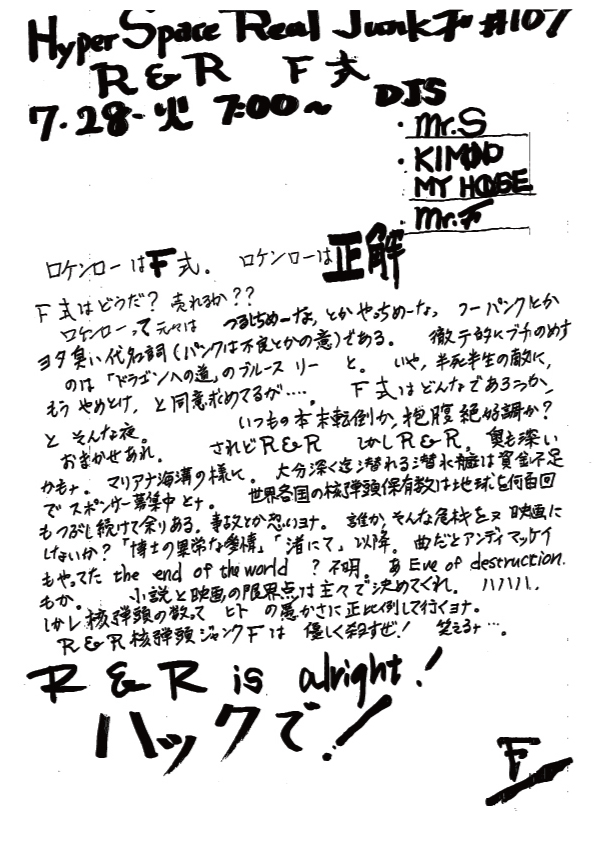 Hyper Space Real Junk F #107
R&R F式
7.28.火 7:00〜 DJS
・Mr.S
・KIMONO
MY HOUSE
・Mr.F
ロケンローはF式。 ロケンローは正解
F式はどうだ? 売れるか??
ロケンローって元々は つるじちめーなっ とか やっちめーなっ フーパンクとか
ヨタ臭い代名詞(パンクは不良とかの意)である。 徹テ的にブチのめす
のは「ドラゴンへの道」のブルース リー と。 いや、半死半生の敵に、
もう やめとけ、と同意求めてるが…‥。 F式はどんなであろうか、
と そんな夜。 いつもの本末転倒か、抱腹絶好調か?
おまかせあれ。 されどR&R しかしR&R。 奥も深い
かもナ。 マリアナ海溝の様に。 大分深く迄潜れる潜水艦は資金不足
でスポンサー募集中とナ。 世界各国の核弾頭保有数は地球を何百回
もつぶし続けて余りある。事故とか恐いヨナ。 誰か、そんな危機をヌ映画に
しないか?「博士の異常な愛情」「渚にて」以降。 曲だとアンディ マッケイ
もやってた the end of the world ?不明。 あ Eve of destruction.
もか。 小説と映画の限界点は 主々で決めてくれ。 ハハハハ.
しかし核弾頭の数って ヒト の愚かさに正比例して行くヨナ。
R&R核弾頭ジャンクFは 優しく殺すぜ! 笑えるナ…。
R&R is alright!
ハックで!
F